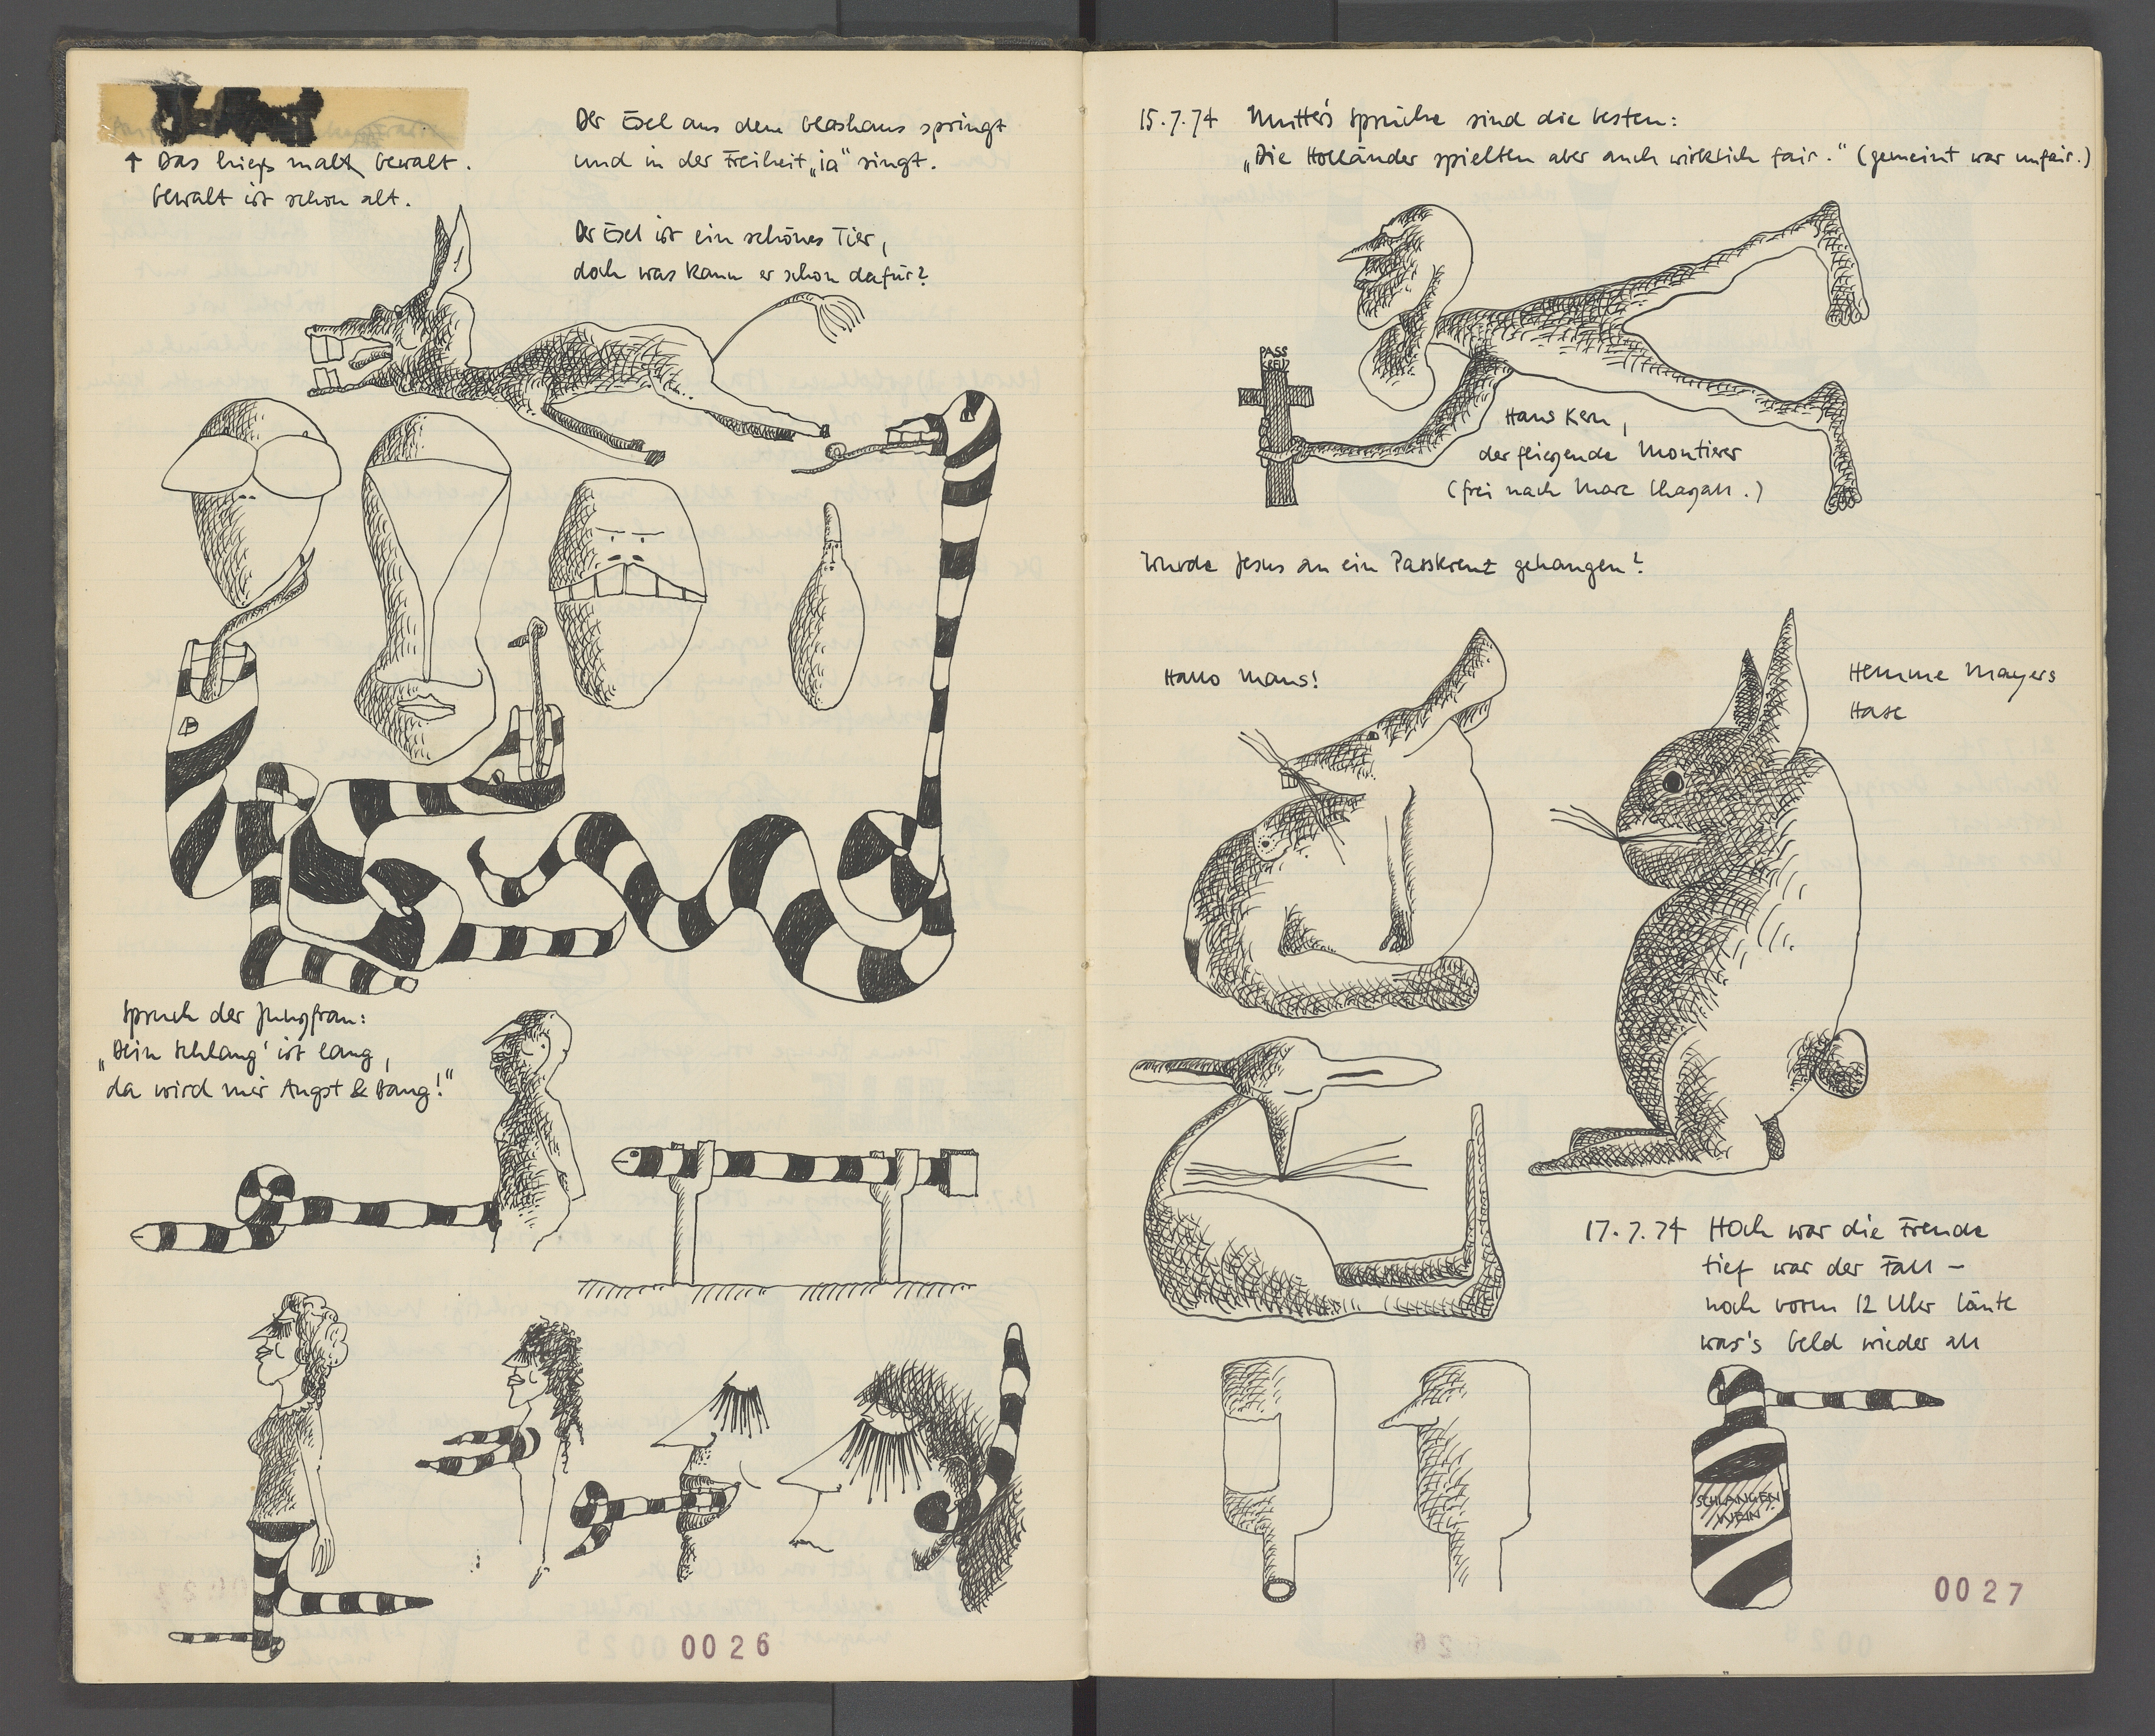 ↑ Das hieß malt Gewalt.
Gewalt ist schon alt.
Der Esel aus dem Glashaus springt
und in der Freiheit „ia“ singt.
Der Esel ist ein schönes Tier,
doch was kann er schon dafür?
Spruch der Jungfrau:
„Dein Schlang' ist lang,
da wird mir Angst & Bang!“
0026
15.7.74 Mutters Sprüche sind die besten:
„Die Holländer spielten aber auch wirklich fair.“ (gemeint war unfair.)
PASS
KREUZ
Hans Kern,
der fliegende Montierer
(frei nach Marc Chagall.)
Wurde Jesus an ein Passkreuz gehangen?
Hallo Maus!
Hemme Mayers
Hase
17.7.74 Hoch war die Freude
tief war der Fall –
noch vorm 12 Uhr läute
war's Geld wieder all
SCHLANGEN
WEIN
0027